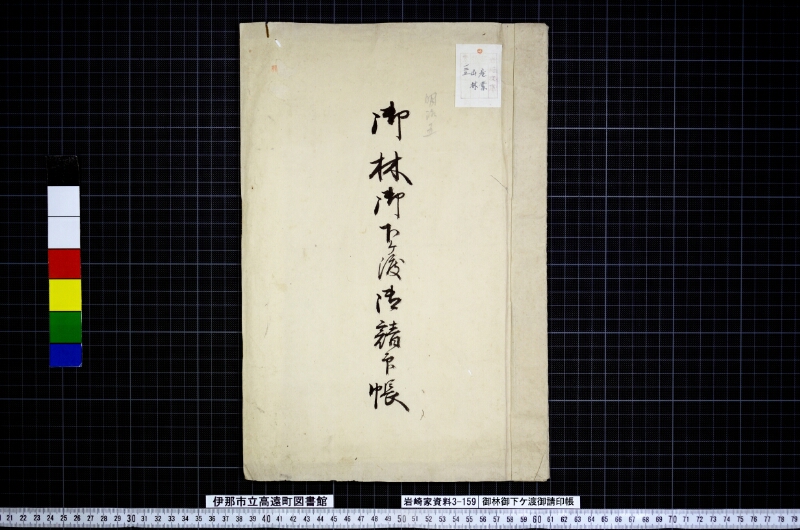 産業
山林
明治五
御林御下ケ渡御請印帳
伊那市立高遠町図書館
岩崎家資料3-159
御林御下ケ渡御請印帳
21 22 23 24 25 26 27 28 29 30 31 32 33 34 35 36 37 38 39 40 41 42 43 44 45 46 47 48 49 50 51 52 53 54 55 56 57 58 59 60 61 62 63 64 65 66 67 68 69 70 71 72 73 74 75 76 77 78 79